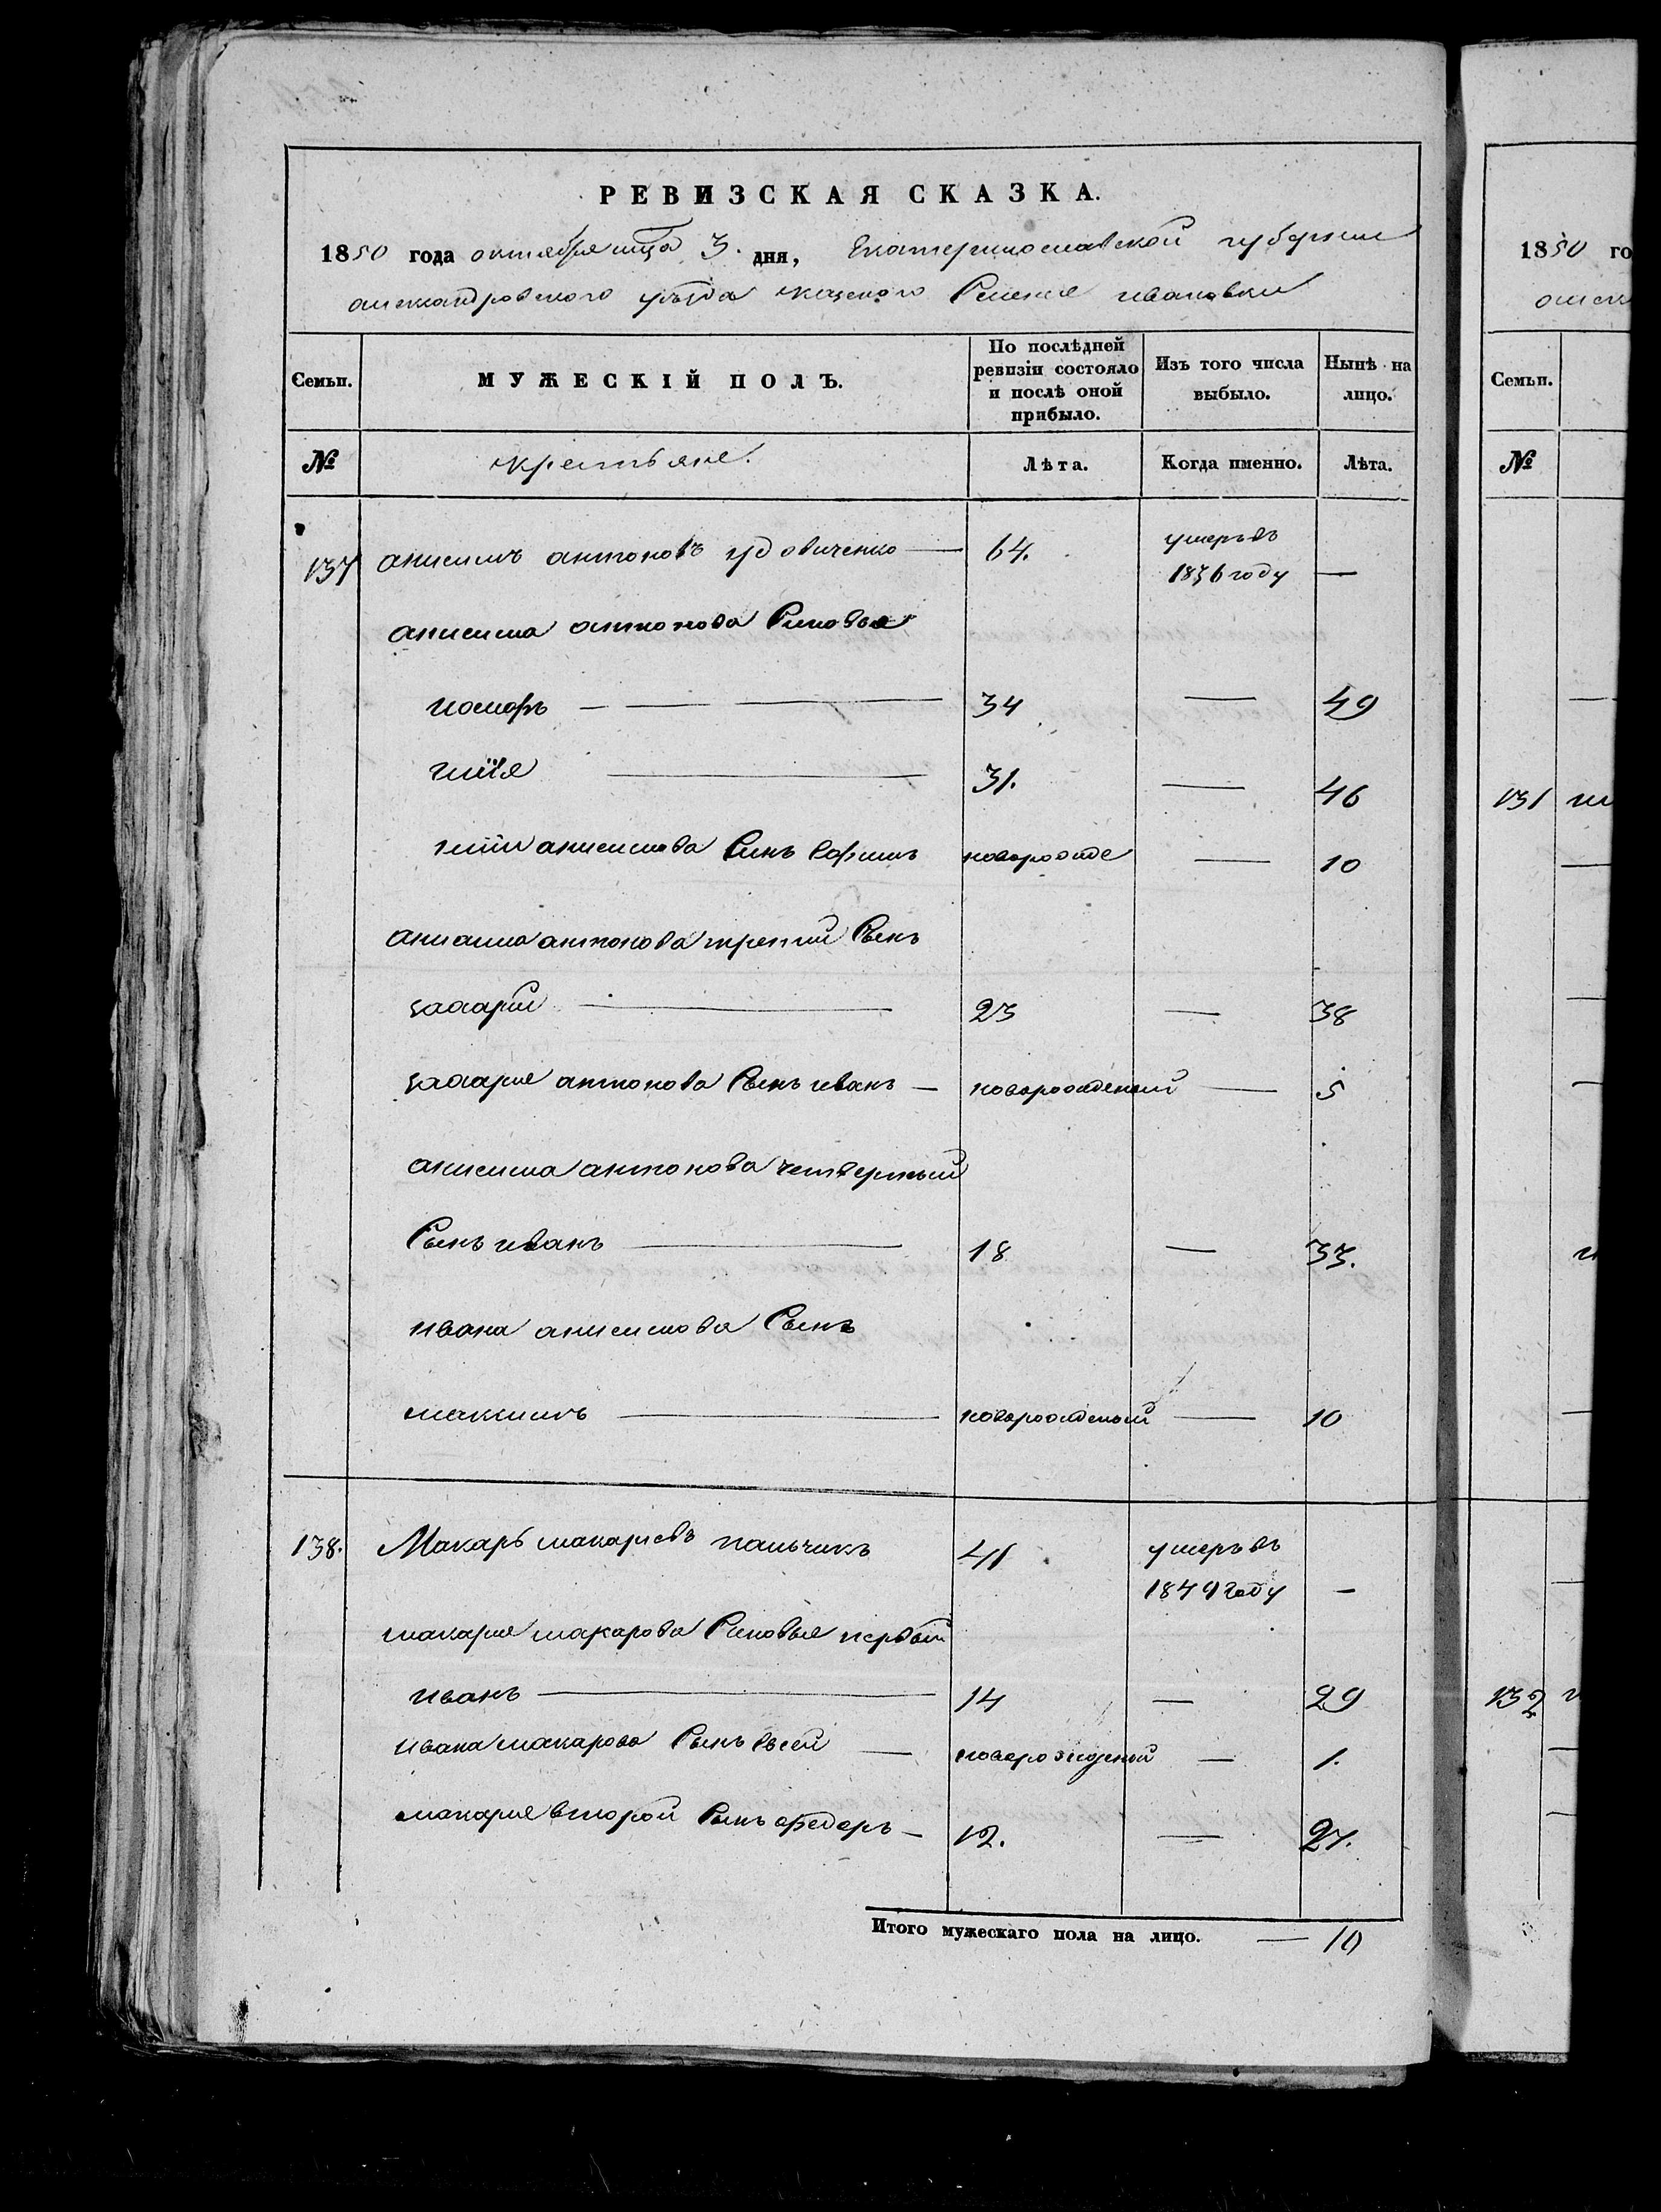 РЕВИЗСКАЯ СКАЗКА.
1850 года октября мца 3. дня, Екатеринославской губернии
александровского уезда казеного Селение ивановки
Семьи. МУЖЕСКІЙ ПОЛЪ. По послѣдней ревизіи состояло и послѣ оной прибыло. Изъ того числа выбыло. Нынѣ на лицо.
№ крестьяне. Лѣта. Когда именно. Лѣта.
137 анисимъ антоновъ удовиченко — 64. умеръ въ
1836 году —
анисима антонова Синовья
34 — 49
илія — 31. — 46
иліи анисимова Синъ новорожде — 10
анисима антонова третий Сынъ
захарий — 23 — 38
захария антонова Сынъ иванъ — новорожденый — 5
анисима антонова четвертый
Сынъ иванъ — 18 — 33.
ивана анисимова Сынъ
максимъ — новорожденый — 10
138. Макаръ макариевъ пальчикъ 41 умеръ въ
1849 году —
макария макарова Синовья первый
иванъ — 14 — 29
ивана макарова Сынъ — новорожденый — 1.
макария второй Сынъ федеръ — 12. — 27.
Итого мужескаго пола на лицо. — 10
1850 го
№
Семьи.
131
132